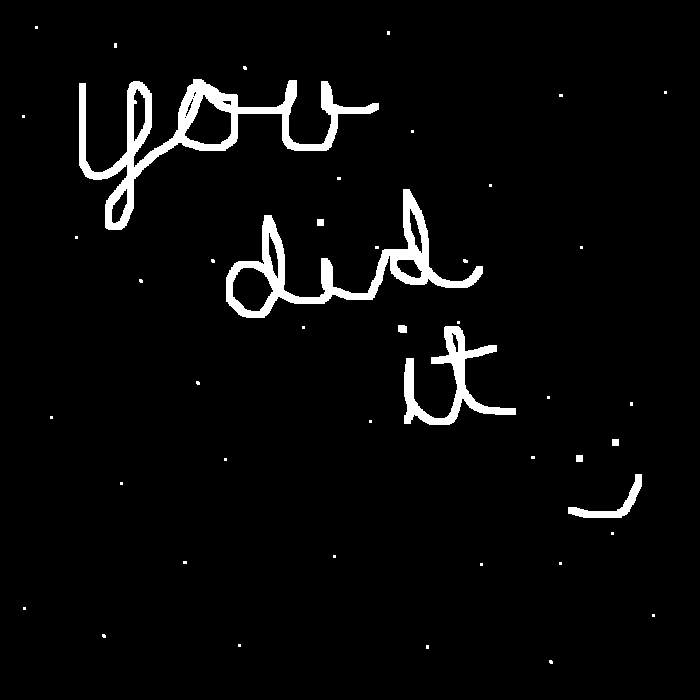 you
did
it